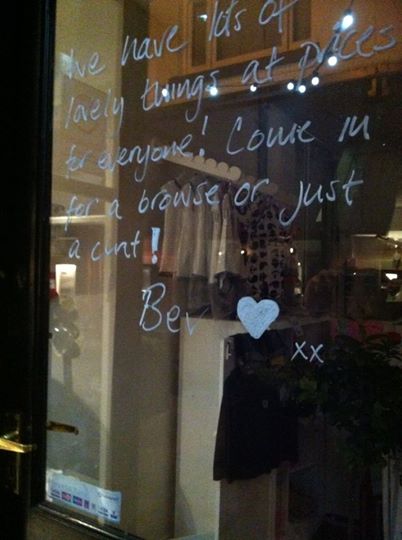 We have lots of
lovely things at prices
for everyone! Come in
for a browse or just
a cunt!
Bev
xx